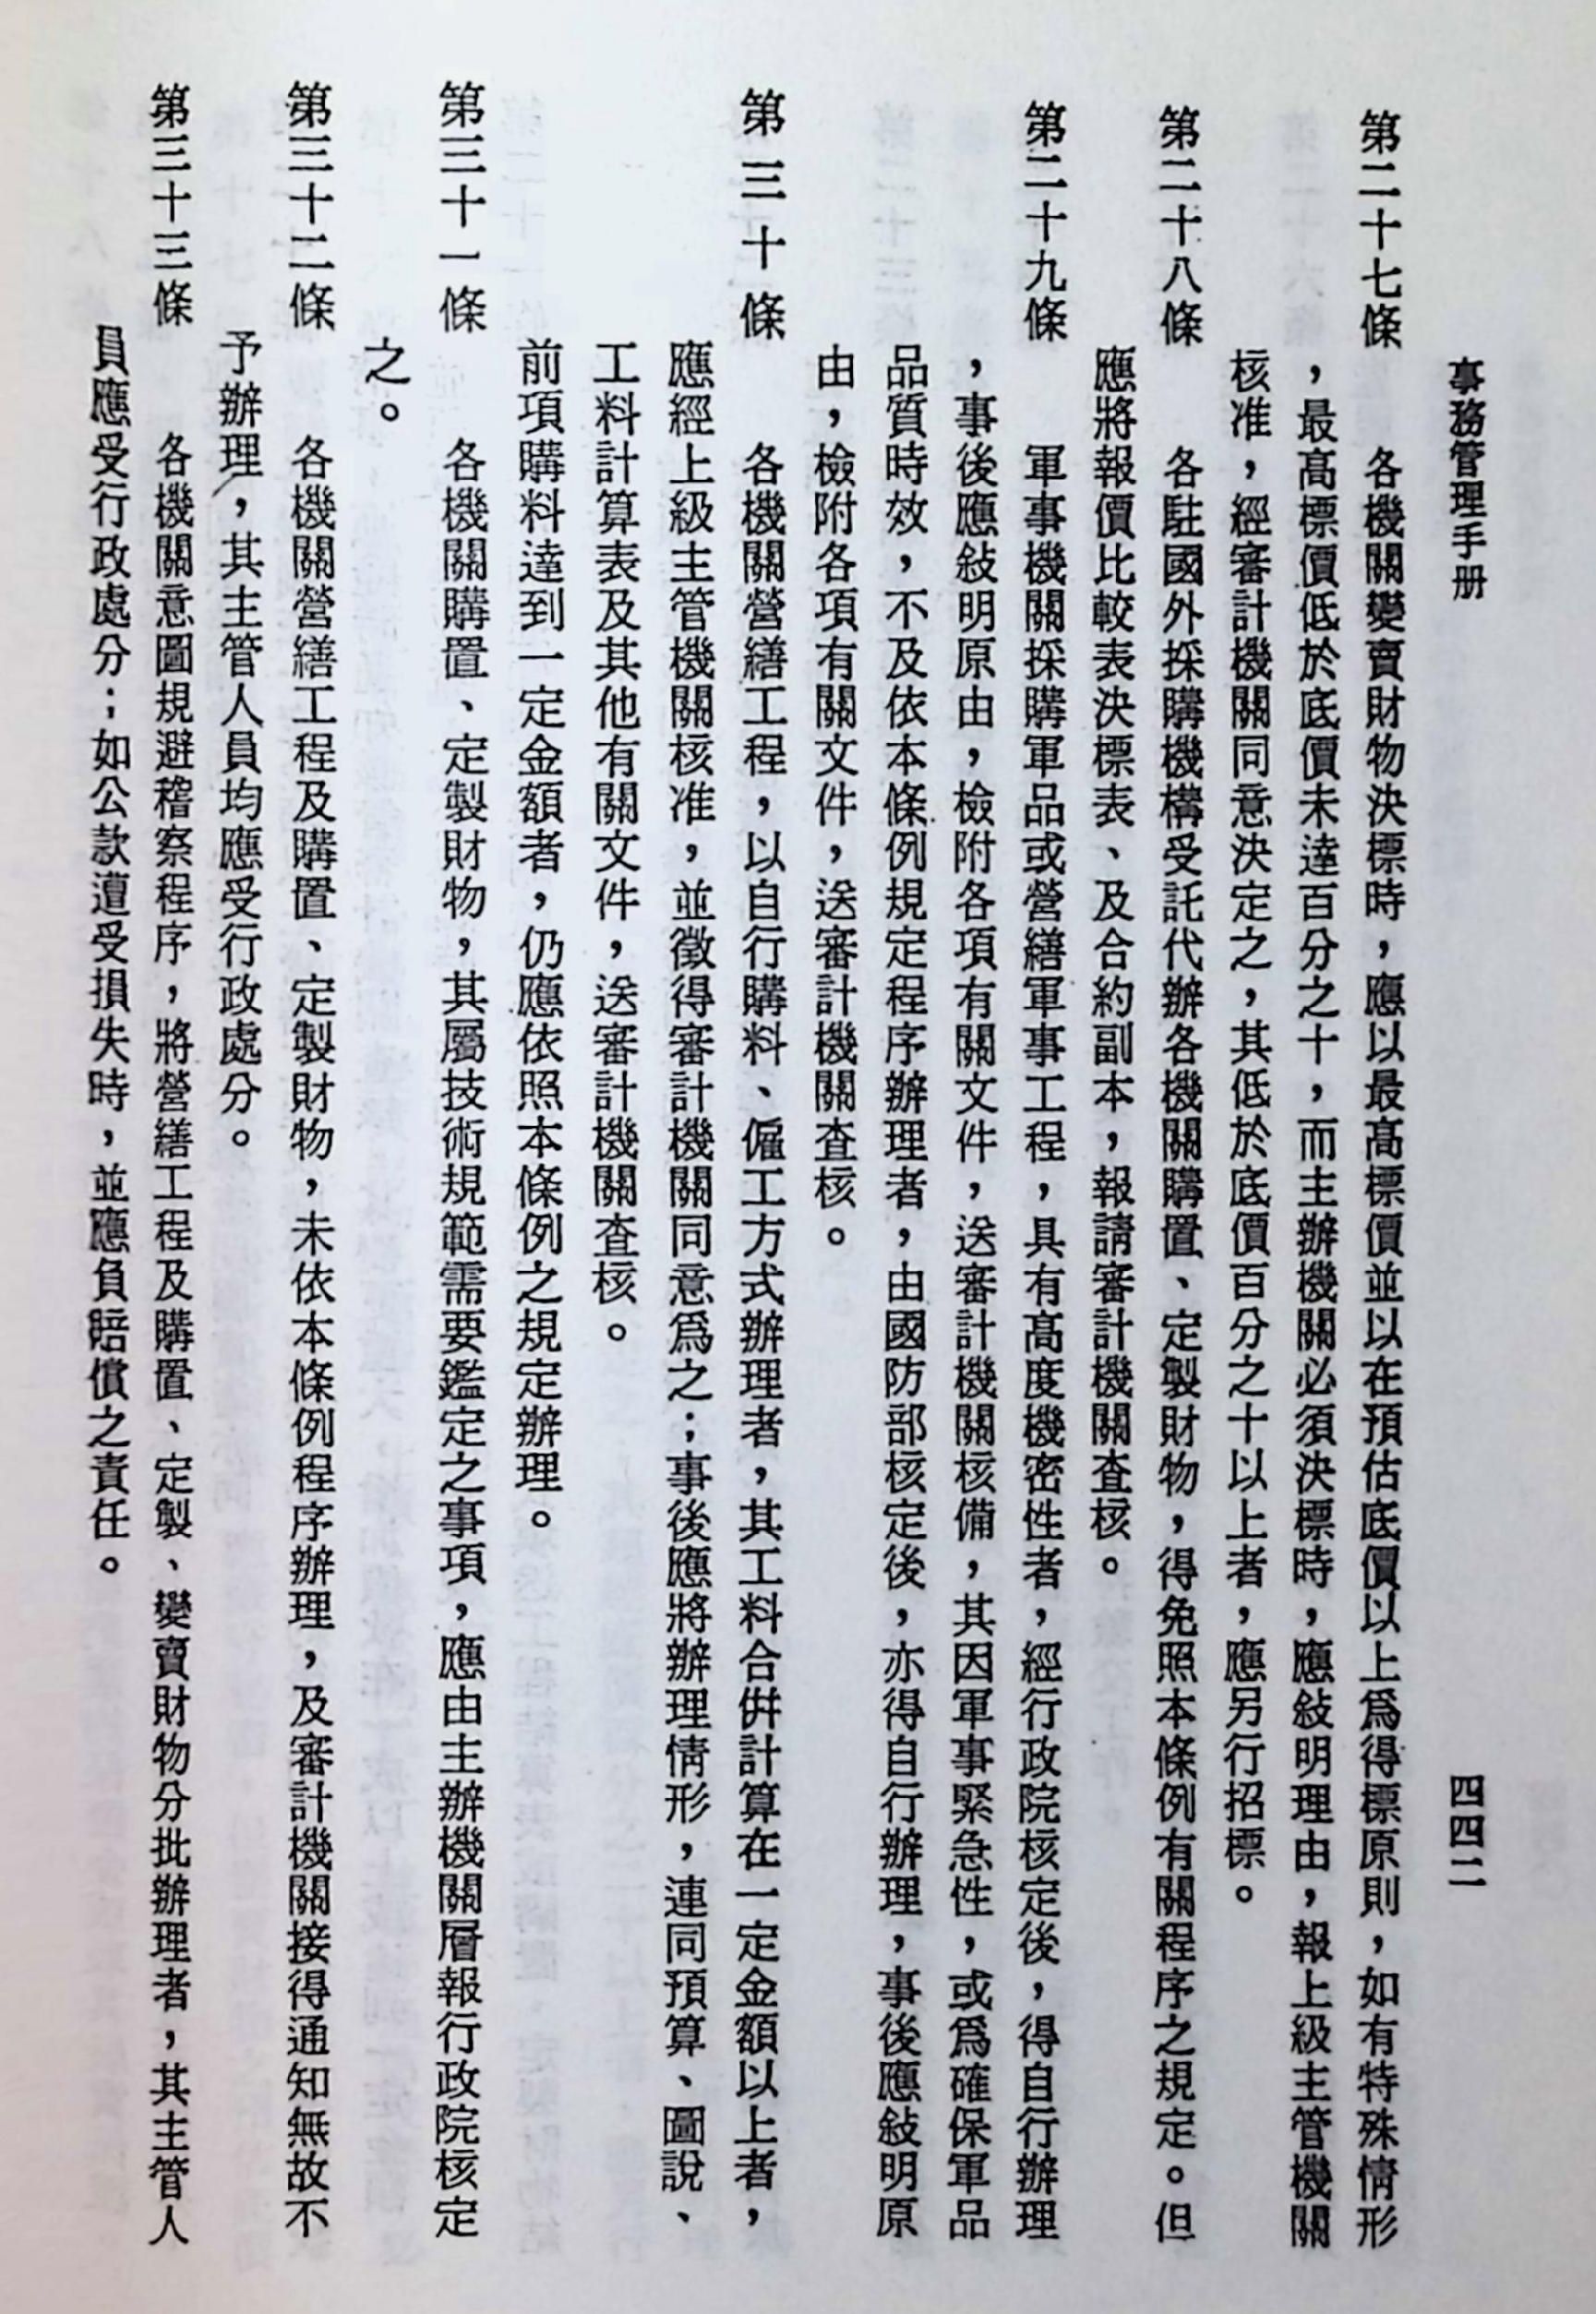 事務管理手册
四四二
第二十七條　各機關變賣財物決標時，應以最高標價並以在預估底價以上爲得標原則，如有特殊情形
，最高標價低於底價未達百分之十，而主辦機關必須決標時，應敍明理由，報上級主管機關
核准，經審計機關同意決定之，其低於底價百分之十以上者，應另行招標。
第二十八條　各駐國外採購機構受託代辦各機關購置、定製財物，得免照本條例有關程序之規定。但
應將報價比較表決標表、及合約副本，報請審計機關查核。
第二十九條　軍事機關採購軍品或營繕軍事工程，具有高度機密性者，經行政院核定後，得自行辦理
，事後應敍明原由，檢附各項有關文件，送審計機關核備，其因軍事緊急性，或爲確保軍品
品質時效，不及依本條例規定程序辦理者，由國防部核定後，亦得自行辦理，事後應敍明原
由，檢附各項有關文件，送審計機關查核。
第三十條　各機關營繕工程，以自行購料、僱工方式辦理者，其工料合倂計算在一定金額以上者，
應經上級主管機關核准，並徵得審計機關同意爲之；事後應將辦理情形，連同預算、圖說、
工料計算表及其他有關文件，送審計機關查核。
前項購料達到一定金額者，仍應依照本條例之規定辦理。
第三十一條　各機關購置、定製財物，其屬技術規範需要鑑定之事項，應由主辦機關層報行政院核定
之。
第三十二條　各機關營繕工程及購置、定製財物，未依本條例程序辦理，及審計機關接得通知無故不
予辦理，其主管人員均應受行政處分。
第三十三條　各機關意圖規避稽察程序，將營繕工程及購置、定製、變賣財物分批辦理者，其主管人
員應受行政處分；如公款遭受損失時，並應負賠償之責任。